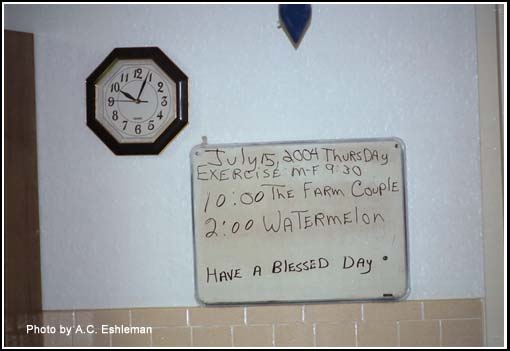 12
1
2
3
4
5
6
7
8
9
10
11
July 15, 2004 Thursday
EXERCISE: M-F 9:30
10:00 The Farm Couple
2:00 Watermelon
Have A Blessed Day
Photo by A.C. Eshleman